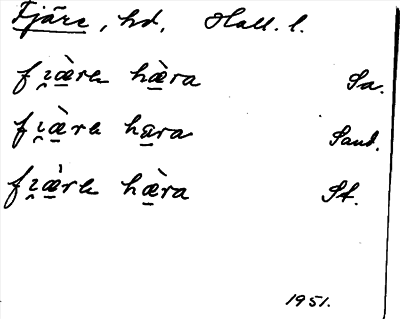 Fjäre, hd, Hall. l.
fı̯æ̱̀rɐ hæ̱̀ra Sa.
fı̯æ̱̀rɐ ha̱ra Sand.
fı̯æ̱̀rɐ hæ̱̀ra St.
1951.